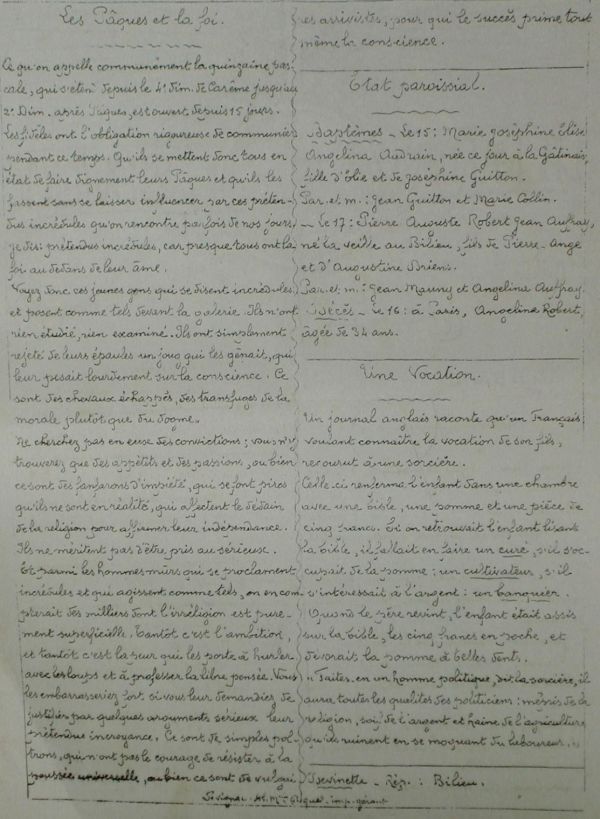 Les Pâques et la foi.
Ce qu'on appelle communément la quinzaine pas-
cale, qui s'étend depuis le 4e dim. de Carême jusqu'au
2e Dim. après Pâques, est ouvert depuis 15 jours.
Les fidèles ont l'obligation rigoureuse de communier
pendant ce temps. Qu'ils se mettent donc tous en
état de faire dignement leurs Pâques et qu'ils les
fassent sans se laisser influencer par ces préten-
dus incrédules qu'on rencontre parfois de nos jours,
je dis: prétendus incrédules, car presque tous ont la
foi au dedans de leur âme.
Voyez donc ces jeunes gens qui se disent incrédules,
et posent comme tels devant la galerie. Ils n'ont
rien étudié, rien examiné. Ils ont simplement
rejeté de leurs épaules un joug qui les gênait, qui
leur pesait lourdement sur la conscience. Ce
sont des chevaux échappés, des transfuges de la
morale plutôt que du dogme.
Ne cherchez pas en eux des convictions; vous n'y
trouverez que des appétits et des passions, ou bien
ce sont des fanfarons d'impiété, qui se font pires
qu'ils ne sont en réalité, qui affectent le dédain
de la religion pour affirmer leur indépendance.
Ils ne méritent pas d'être pris au sérieux.
Et parmi les hommes mûrs qui se proclament
incrédules et qui agissent comme tels, on en com-
pterait des milliers dont l'irréligion est pure-
ment superficielle. Tantôt c'est l'ambition,
et tantôt c'est la peur qui les porte à hurler
avec les loups et à professer la libre pensée. Vous
les embarrasseriez fort si vous leur demandiez de
justifier par quelques arguments sérieux leur
prétendue incroyance. Ce sont de simples pol-
trons, qui n'ont pas le courage de résister à la
poussée universelle, ou bien ce sont de vulgai
res arrivistes, pour qui le succès prime tout
même la conscience.
Etat paroissial.
Baptêmes - Le 15: Marie Joséphine Elise
Angelina Audrain, née ce jour à la Gâtinais,
fille d'Elie et de Joséphine Guitton.
Par. et m.: Jean Guitton et Marie Collin.
- Le 17: Pierre Auguste Robert Jean Auffray,
né la veille au Bilieu, fils de Pierre-Ange
et d'Augustine Briens.
Par. et m.: Jean Mauny et Angelina Auffray.
Décès - Le 16: à Paris, Angeline Robert,
âgée de 34 ans.
Une Vocation.
Un journal anglais raconte qu'un Français
voulant connaître la vocation de son fils,
recourut à une sorcière.
Celle-ci renferma l'enfant dans une chambre
avec une bible, une pomme et une pièce de
cinq francs. Si on retrouvait l'enfant lisant
la bible, il fallait en faire un curé, s'il s'oc-
cupait de la pomme: un cultivateur, s'il
s'intéressait à l'argent: un banquier.
Quand le père revint, l'enfant était assis
sur la bible, les cinq francs en poche, et
dévorait la pomme à belles dents.
"Faites-en un homme politique, dit la sorcière, il
aura toutes les qualités des politiciens: mépris de la
religion, soif de l'argent et haine de l'agriculture
qu'ils ruinent en se moquant du laboureur."
Devinette - Rép.: Bilieu.
Sévignac imp. gérant